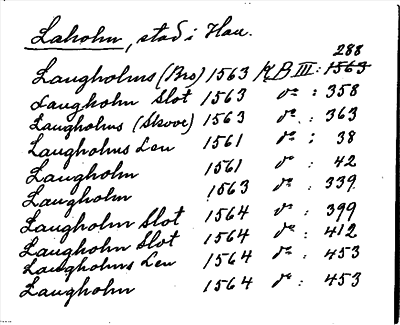 Laholm, stad i Hall.
Laugholms (Bro) 1563 KB III: 1563 288
Laugholm Slot 1563 do : 358
Laugholms (Skove) 1563 do : 363
Laugholms Len 1561 do : 38
Laugholm 1561 do : 42
Laugholm 1563 do : 339
Laugholm Slot 1564 do : 399
Laugholm Slot 1564 do : 412
Laugholms Len 1564 do : 453
Laugholm 1564 do : 453